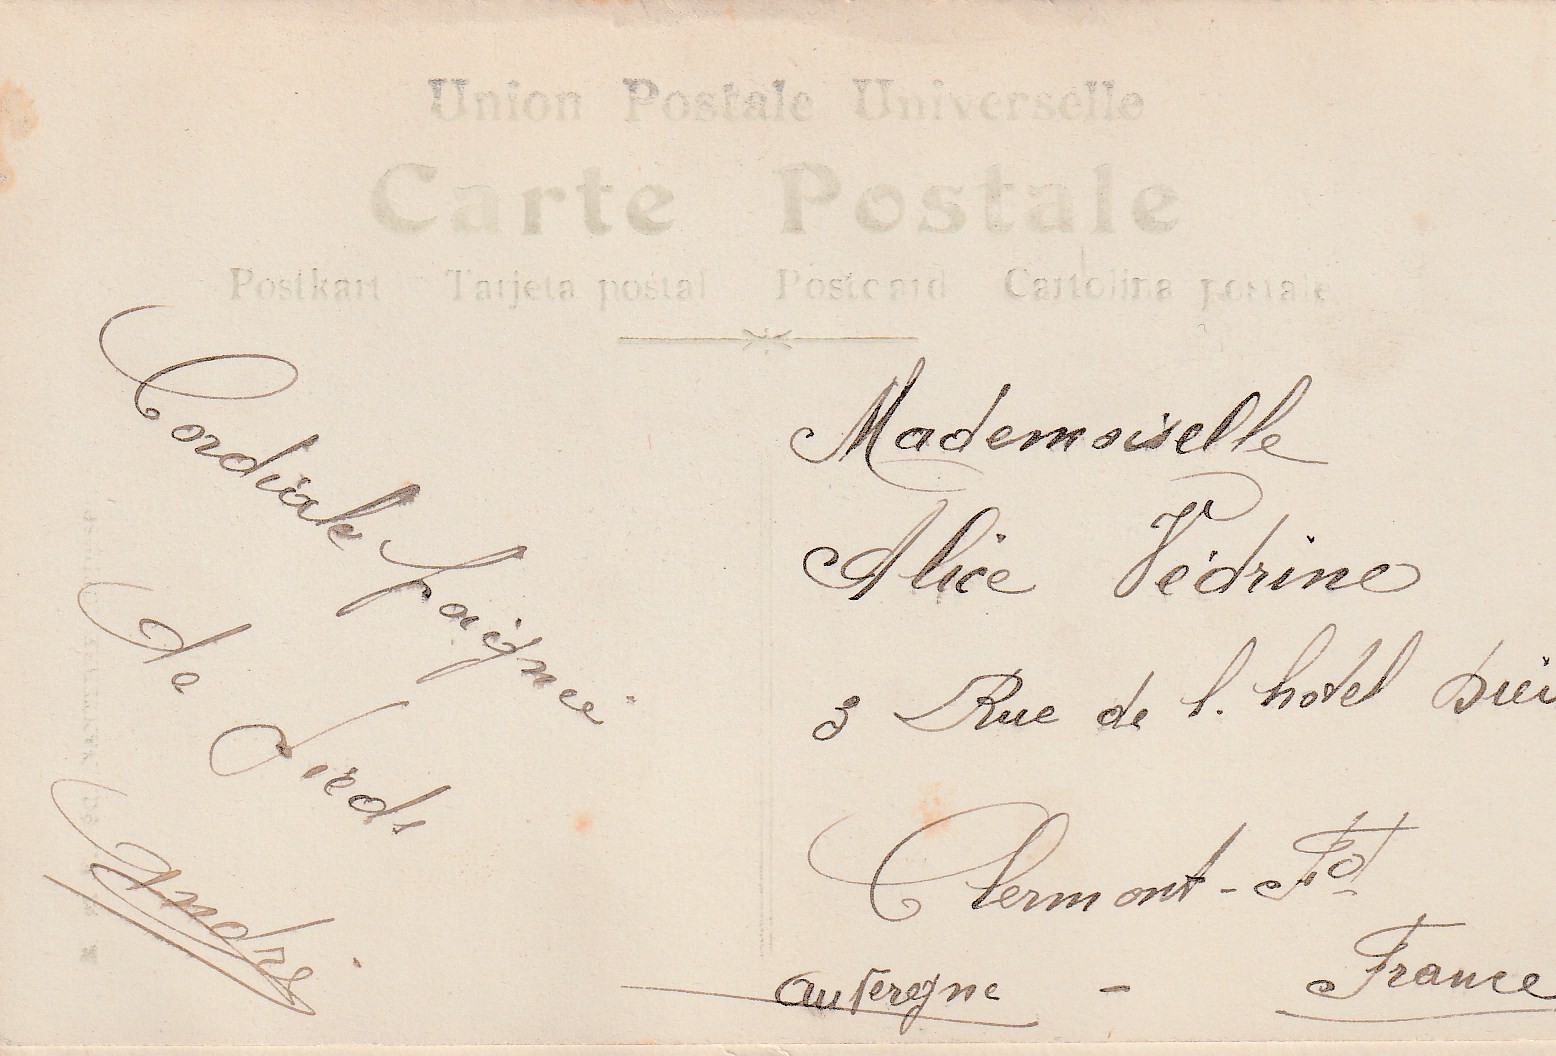 Union Postale Universelle
Carte Postale
Postkart Tarjeta postal Postcard Cartolina postale
Cordiale poignée
de Pieds
André
Mademoiselle
Alice Védrine
3 Rue de l. hotel Dieu
Clermont-Fd
Auvergne - France